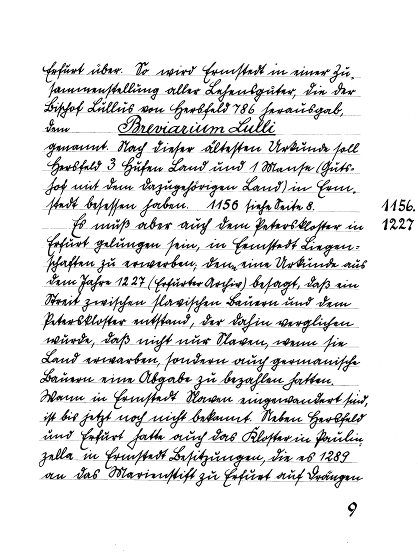 Erfurt über. So wird Ermstedt in einer Zu-
sammenstellung aller Lehensgüter, die der
Bischof Lullus von Hersfeld 786 herausgab,
dem Breviarium Lulli
genannt. Nach dieser ältesten Urkunde soll
Hersfeld 3 Hufen Land und 1 Manse (Guts-
hof mit dem dazugehörigen Land) in Erm-
stedt besessen haben. 1156 siehe Seite 8. 1156.
Es muß aber auch dem Peterskloster in 1227
Erfurt gelungen sein, in Ermstedt Liegen-
schaften zu erwerben, denn eine Urkunde aus
dem Jahre 1227 (Erfurter Archiv) besagt, daß ein
Streit zwischen slavischen Bauern und dem
Peterskloster entstand, der dahin verglichen
wurde, daß nicht nur Slaven, wenn sie
Land erwarben, sondern auch germanische
Bauern eine Abgabe zu bezahlen hatten.
Wann in Ermstedt Slaven eingewandert sind,
ist bis jetzt noch nicht bekannt. Neben Hersfeld
und Erfurt hatte auch das Kloster in Paulin-
zella in Ermstedt Besitzungen, die es 1289
an das Marienstift zu Erfurt auf Drängen
9